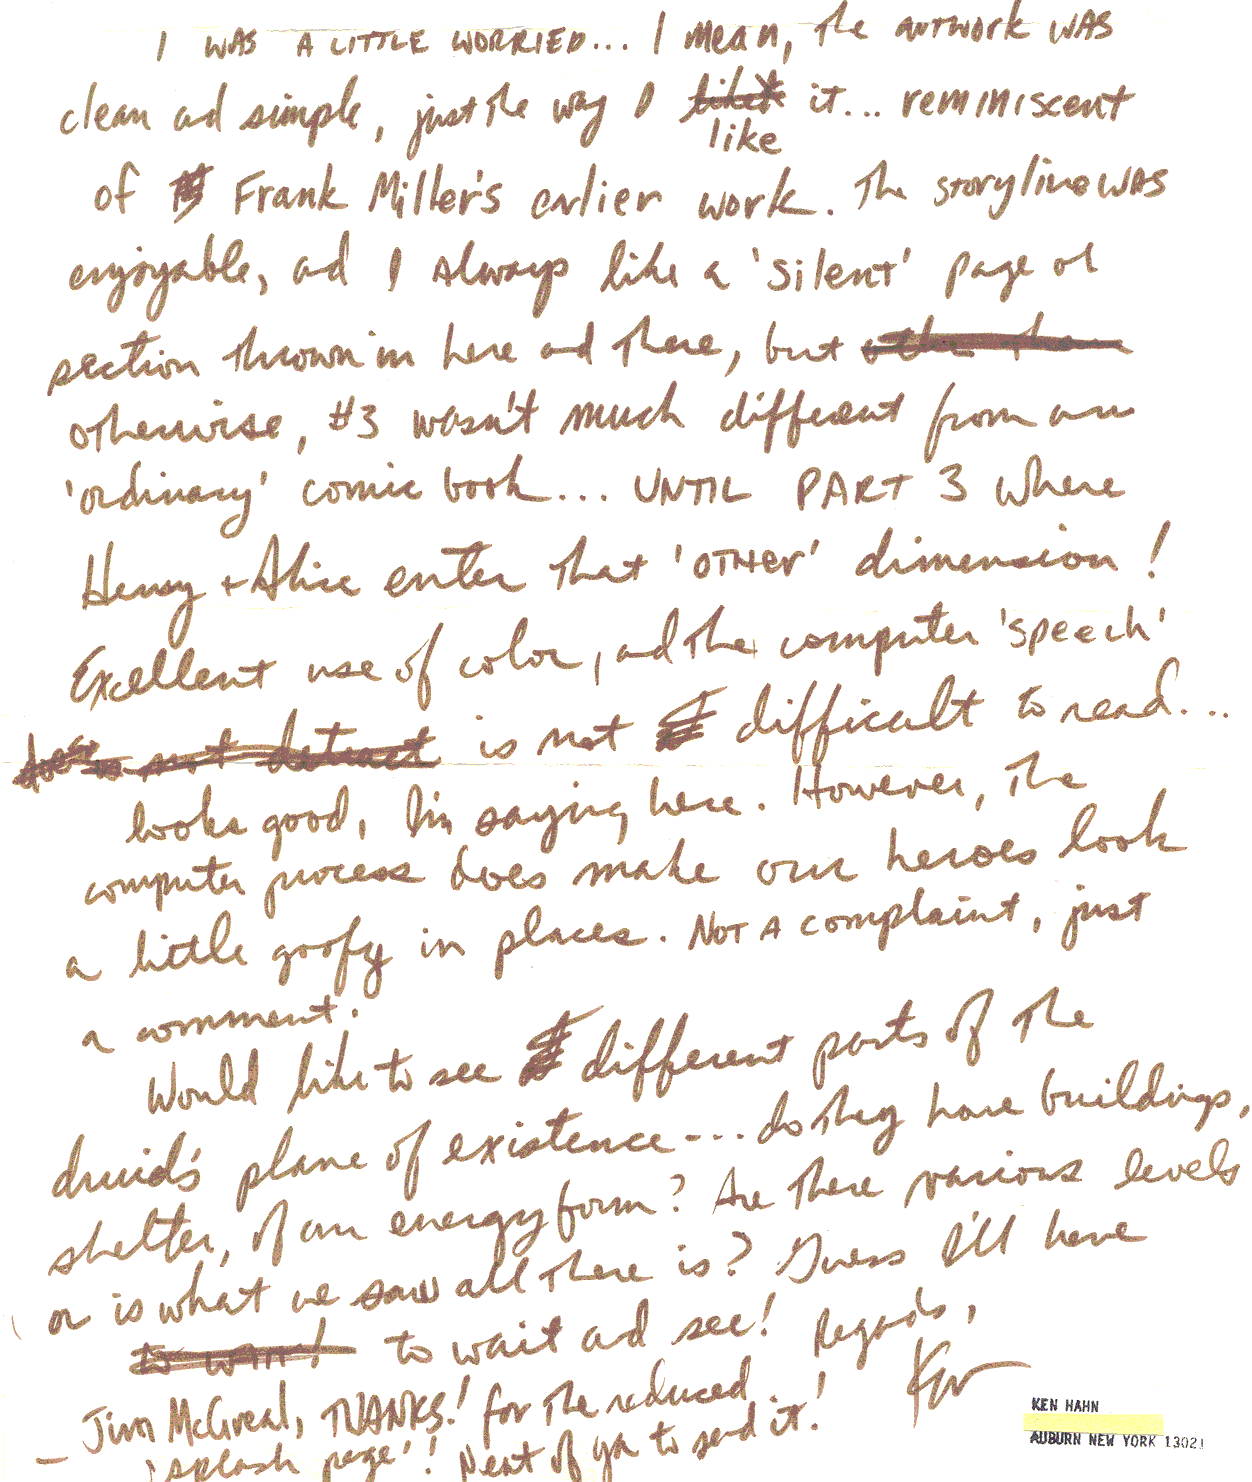 I WAS A LITTLE WORRIED... I mean, the artwork WAS
clean ad simple, just the way I like it... reminiscent
of Frank Miller's earlier work. The storyline WAS
enjoyable, ad I Always like a 'silent' page or
section thrown in here ad there, but
otherwise, #3 wasn't much different from an
'ordinary' comic book... UNTIL PART 3 where
Henry + Alice enter that 'OTHER' dimension!
Excellent use of color, ad the computer 'speech'
is not difficult to read...
looks good, I'm saying here. However, the
computer process does make our heroes look
a little goofy in places. NOT A complaint, just
a comment.
Would like to see different parts of the
druid's plane of existence... do they have buildings,
shelter, of an energy form? Are there various levels
or is what we saw all there is? Guess I'll have
to wait ad see! Regards,
Ken
– Jim McGreal, THANKS! for the reduced
'splash page'! Neat of ya to send it!
KEN HAHN
AUBURN NEW YORK 13021